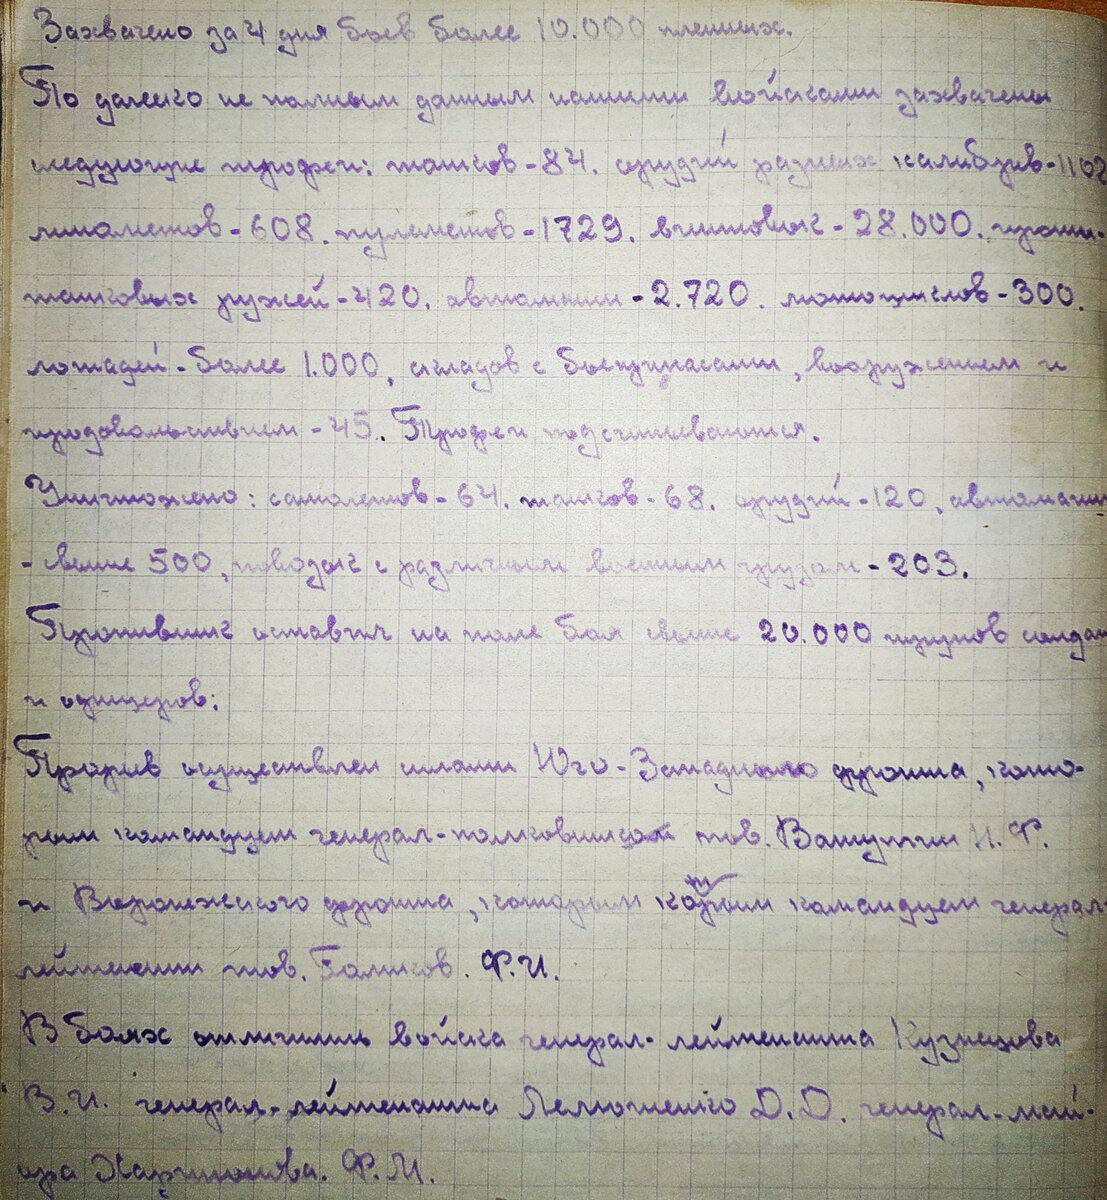 Захвачено за 4 дня боев более 10.000 пленных.
По далеко не полным данным нашими войсками захвачены
следующие трофеи: танков-84. орудий разных калибров-1102
минометов-608. пулеметов-1729. винтовок-28.000. проти-
танковых ружей-420. автомашин-2.720. мотоциклов-300.
лошадей-более 1.000, складов с боеприпасами, вооружением и
продовольствием-45. Трофеи подсчитываются.
Уничтожено: самолетов-64. танков-68. орудий-120. автомашин
-свыше 500, повозок с различным военным грузом-203.
Противник оставил на поле боя свыше 20.000 трупов солдат
и офицеров:
Прорыв осуществлен силами Юго-Западного фронта, кото-
рым командует генерал-полковником тов. Ватутин Н.Ф.
и Воронежского фронта, которым командует генерал-
лейтенант тов. Голиков. Ф.И.
В боях отличились войска генерал-лейтенанта Кузнецова
В.И. генерал-лейтенанта Лелюшенко Д.Д. генерал-май-
ора Харитонова. Ф.М.